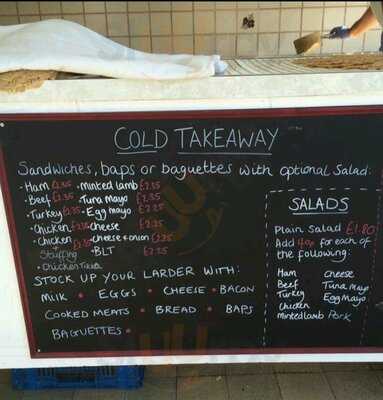 COLD TAKEAWAY
Sandwiches, baps or baguettes with optional Salad:
• Ham £2.35 • minted lamb £2.35
• Beef £2.35 • Tuna mayo £2.35
• Turkey £2.35 • Egg mayo £2.35
• Chicken £2.35 • Cheese £2.35
• Chicken £2.35 • Cheese + onion £2.35
Stuffing • BLT £2.35
• Chicken Tikka
STOCK UP YOUR LARDER WITH:
MILK • EGGS • CHEESE • BACON
COOKED MEATS • BREAD • BAPS
BAGUETTES •
SALADS
Plain Salad £1.80
Add 40p for each of
the following:
Ham Cheese
Beef Tuna Mayo
Turkey Egg Mayo
Chicken
Minted lamb Pork